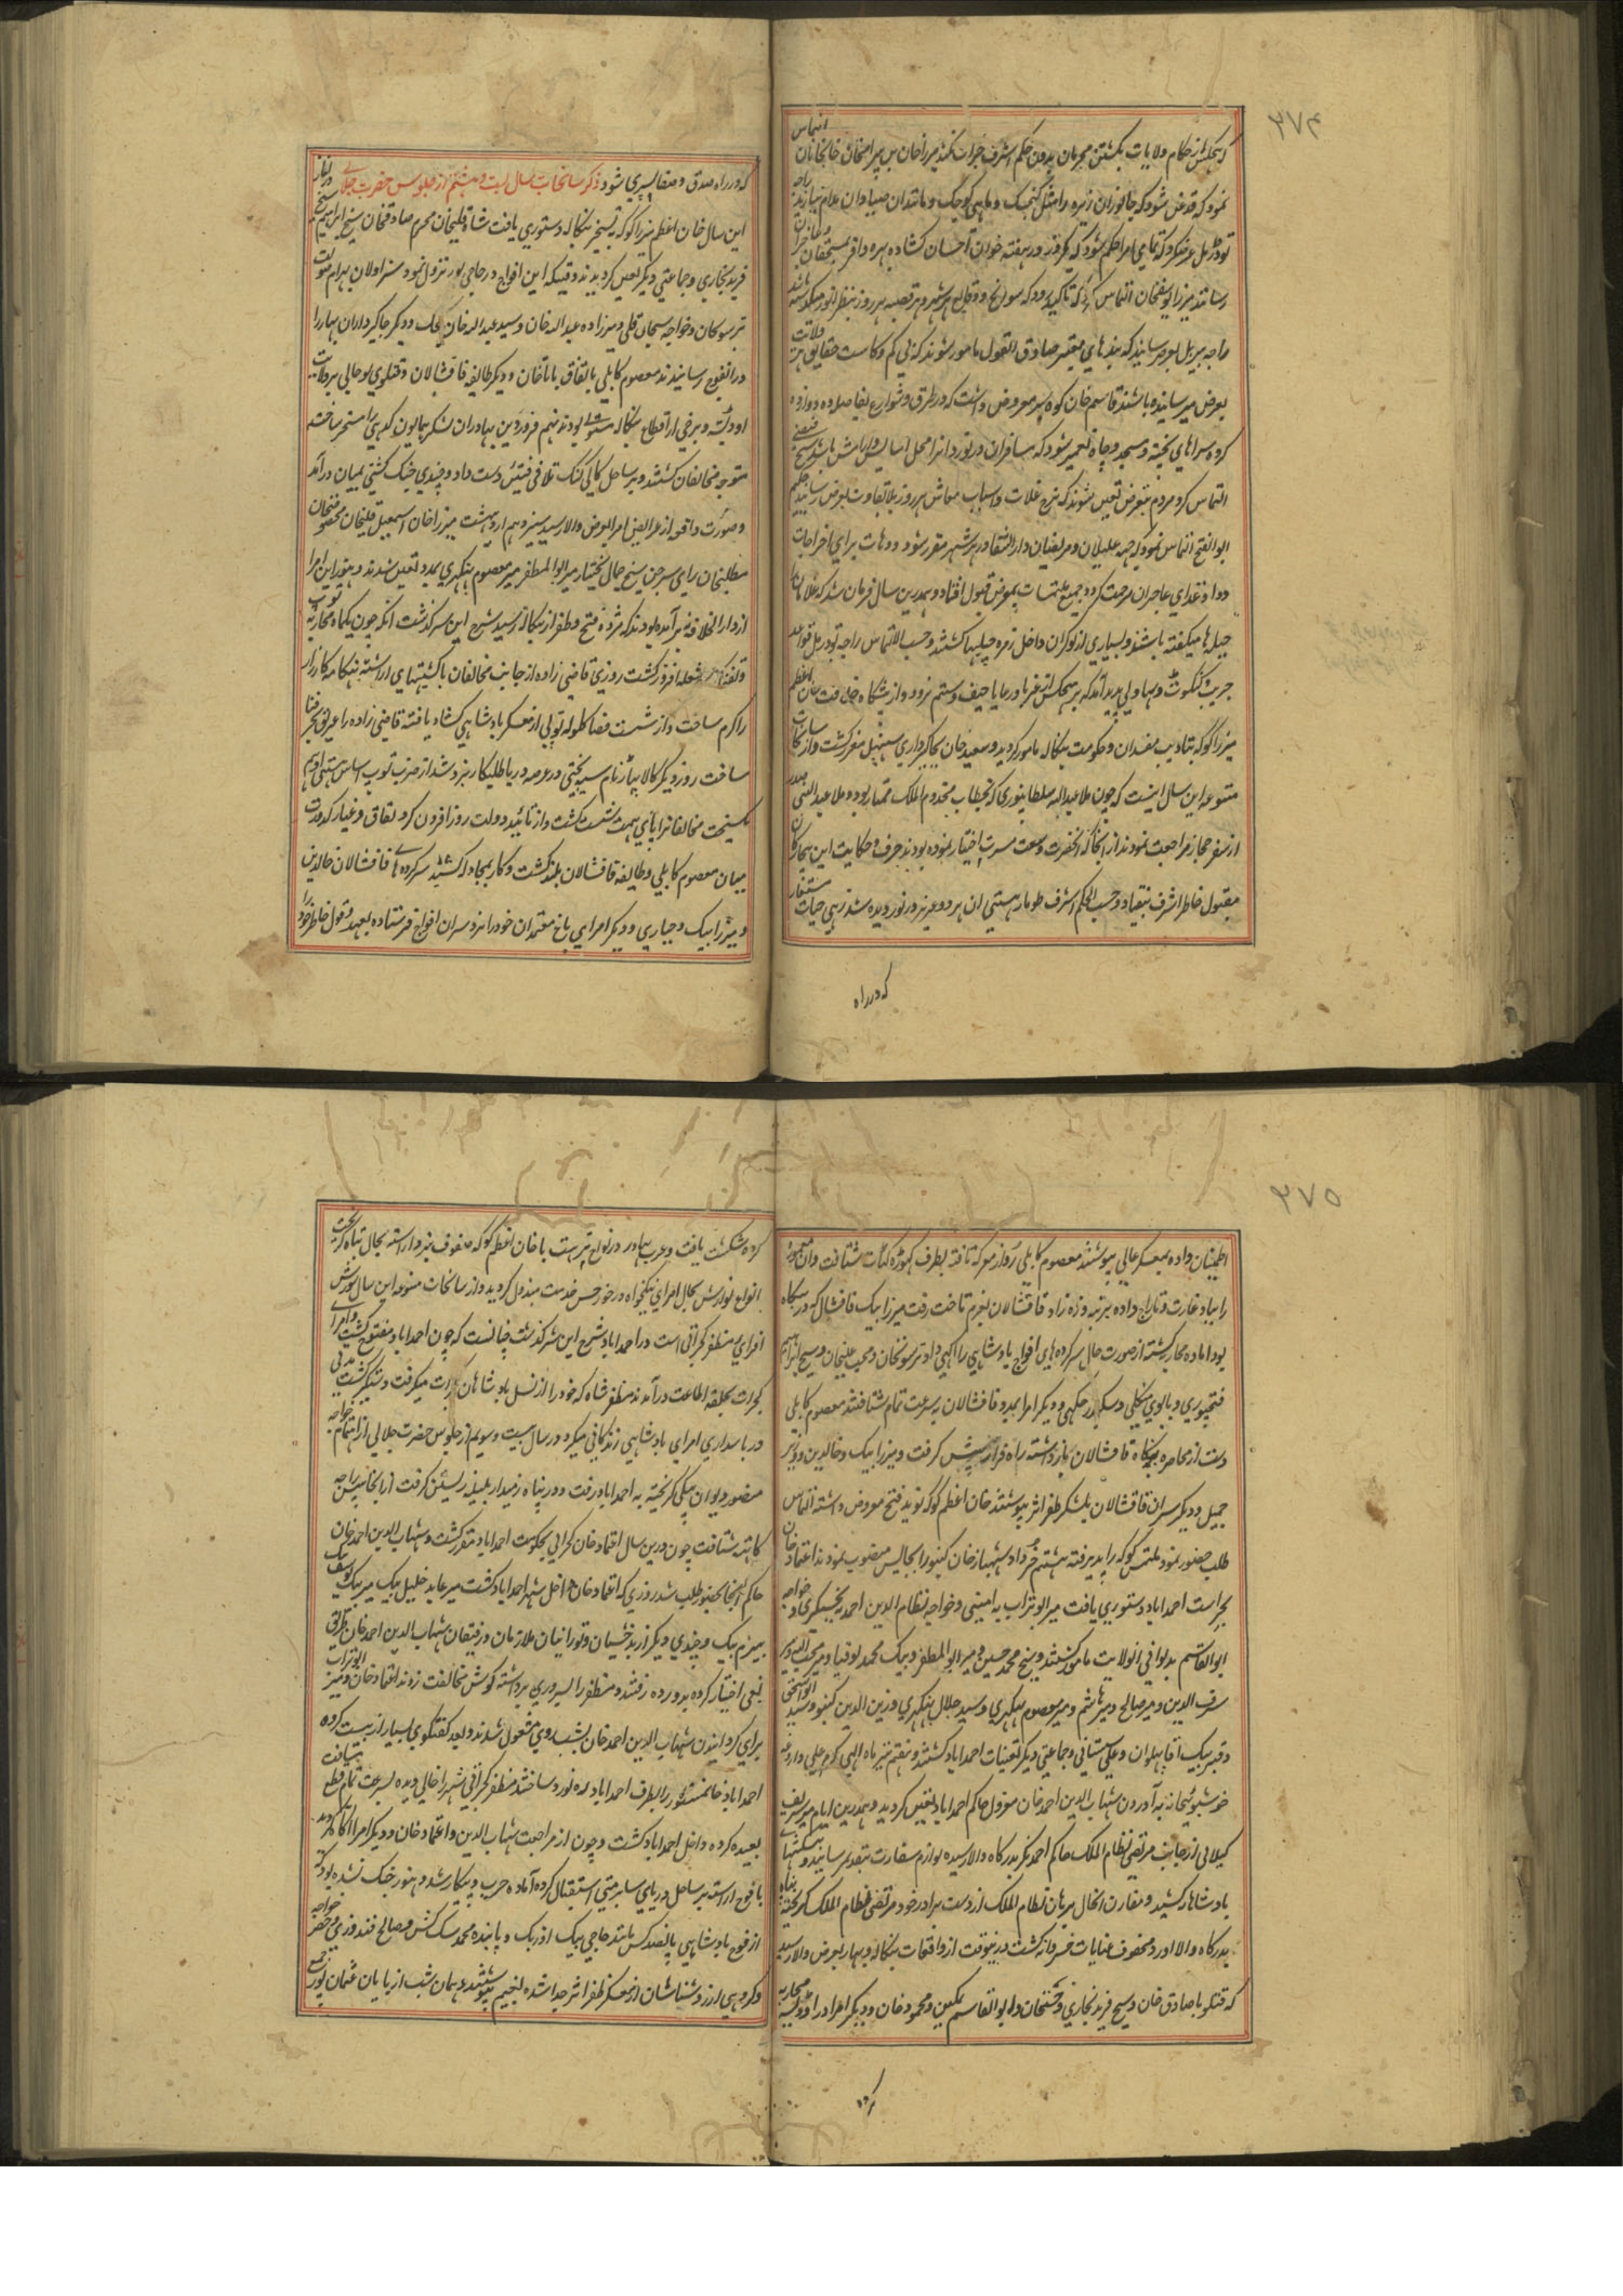 ۲۷۴
التماس
که هیچکس از حکام ولایات بکشتن مجرمان بدون حکم اشرف جرات نکند میرزاخان بن بیرامخان خانخانان
نمود که قدغن شود که جانوران زیره را مثل کنجشک و ماهی کوچک و مانند آن صیادان بدام نیارند راجه
تودرمل عرض کرد که تمامی امرا حکم شود که یکروز در هفته خوان احسان کشاده بهره وافر بمستحقان
رسانند میرزا یوسفخان التماس کرد که تاکید رود که سوانح و وقایع هر شهر و هر قصبه هر روز بنظر انور میگذشته باشد
راجه بیربل بعرض رسانید که بندهای معتبر صادق القول مامور شوند که بی کم و کاست حقایق هر ولایت
بعرض میرسانیده باشند قاسم خان کوه پر معروض داشت که در طرق و شوارع بفاصله ده دوازده
کروه سراهای پخته و مسجد و چاه تعمیر شود که مسافران ره نورد را محل آسایش و آرامش باشد شیخ فیضی
التماس کرد مردم بتعرض تعین شوند که نرخ غلات و اسباب معاش هر روز بلا تفاوت بعرض رسانند حکیم
ابوالفتح التماس نمود که جهه علیلان و مریضان دارالشفا در هر شهر مقرر شود و دهات برای اخراجات
دوا و غذای عاجزان مرحمت گردد جمیع ملتمسات بمعرض قبول افتاد و همدرین سال فرمان شد که غلامان را
چیله ها میگفته باشند و بسیاری از نوکران داخل زمره چیلها گشتند و حسب الالتماس راجه تودرمل قواعد
میرزا کوکه بتادیب مفسدان و حکومت بنگاله مامور گردید و سعید خان بجاگیرداری سنبهل مقرر گشت و از سانحات
متنوعه این سال اینست که چون ملا عبدالله سلطانپوری که بخطاب مخدوم الملک ممتاز بود و ملا عبدالنبی صدر
از سفر حجاز مراجعت نمودند از آنجا که آنحضرت وسعت مشرب اختیار نموده بودند حرف و حکایت این بیچارگان
مقبول خاطر اشرف نیفتاد و حسب الحکم اشرف طومار هستی آن هر دو عزیز در نوردیده شد زهی حیات مستعار
که در راه
که در راه صدق و صفا سپری شود ذکر سانحات سال بیست و هشتم از جلوس حضرت جلالی در آغاز
این سال خان اعظم میرزا کوکه به تسخیر بنگاله دستوری یافت شاه قلیخان محرم صادقخان شیخ ابراهیم
فرید بخاری و جماعتی دیگر تعین گردیدند وقتیکه این افواج در حاجی پور نزول نمود سزاولان بهرام صولت
ترسونخان و خواجه سبحان قلی و میرزاده عبدالله خان و سید عبدالله خان بیگ و دیگر جاگیرداران بهار را
در آنفوج رسانیدند معصوم کابلی باتفاق باباخان و دیگر طایفه قاقشالان و قتلوی لوحانی بر ولایت
اودیسه و برخی از اقطاع بنگاله مستولی بودند نهم فروردین بهادران لشکر همایون گدهی را مسخر ساخته
متوجه مخالفان گشتند و بر ساحل کالی گنگ تلاقی فئتین دست داد و چندی جنگ کشتی بمیان درآمد
و صورت واقعه از عرایض امرا بعرض والا رسید سیزدهم اردیبهشت میرزا خان اسمعیل قلیخان مخصوصخان
مطلبخان رای سرجن شیخ جمال بختیار میر ابوالمظفر میر معصوم بهکری بمدد تعین شدند و هنوز این امرا
از دارالخلافه برآمده بودند که مژده فتح و ظفر از بنگاله رسید شرح این سرگذشت آنکه چون یکماه محاربه توپ
و تفنگ شعله افروز گشت روزی قاضی زاده از جانب مخالفان با کشتیهای آراسته هنگامه کارزار
را گرم ساخت و از شست قضا گلوله توپی از معسکر بادشاهی گشاد یافته قاضی زاده را غریق بحر فنا
ساخت روز دیگر کالا پهار نام سیه بختی در عرصه دریا طلبکار نبرد شد از ضرب توپ اساس هستی او هم
گسیخت مخالفانرا پای همت سست گشت و از تائید دولت روز افزون گرد نفاق و غبار کدورت
میان معصوم کابلی و طایفه قاقشالان بلند گشت و کار بمجادله کشید سرکرده های قاقشالان خالدین
و میرزا بیگ و جباری و دیگر امرای باغ معتمدان خود را نزد سران افواج فرستاده بعهد و قول خاطر خود را
۲۷۵
اطمینان داده بمعسکر عالی پیوستند معصوم کابلی رو از معرکه تافته بطرف گهوره گهات شتافت و آن معموره
را بباد غارت و تاراج داده بر بنه و زه زاد قاقشالان بعزم تاخت رفت میرزا بیگ قاقشال که در بنگاه
بود آماده محاربه گشته از صورت حال سرکرده های افواج بادشاهی را آگهی داد ترسونخان و محب علیخان و شیخ ابراهیم
فتحپوری و بابوی منکلی و سکندر چکنی و دیگر امرا بمدد قاقشالان بسرعت تمام شتافتند معصوم کابلی
دست از محاصره بنگاه قاقشالان باز داشته راه فرار پیش گرفت و میرزا بیگ و خالدین و وزیر
جمیل و دیگر سران قاقشالان بلشکر ظفر اثر پیوستند خان اعظم کوکه نوید فتح معروض داشته التماس
طلب حضور نمود ملتمس کوکه را پذیرفته هشتم خرداد شهباز خان کنبو را بجایش منصوب نمودند اعتماد خان
بحراست احمداباد دستوری یافت میر ابوتراب به امینی و خواجه نظام الدین احمد به بخشیگری و خواجه
ابوالقاسم بدیوانی آنولایت مامور گشتند و شیخ محمد حسین و میر ابوالمظفر و بیگ محمد توقبای و میر محب الله و میر
شرف الدین و میر صالح و میر هاشم و میر معصوم بهکری و سید جلال بهکری و زین الدین کنبو و سید ابواسحق
و قنبر بیگ آقا پهلوان و علی سیستانی و جماعتی دیگر تعینات احمداباد گشتند و هفتم تیر ماه الهی کرم علی داروغه
خوشبویخانه به آوردن شهاب الدین احمد خان معزول حاکم احمداباد تعین گردید و همدرین ایام میر شریف
گیلانی از جانب مرتضی نظام الملک حاکم احمدنگر بدرگاه والا رسیده لوازم سفارت بتقدیم رسانید و پیشکشهای
بادشاهانه کشید و مقارن آنحال برهان نظام الملک از دست برادر خود مرتضی نظام الملک گریخته پناه
بدرگاه والا آورد و محفوف عنایات خسروانه گشت درینوقت از واقعات بنگاله و بهار بعرض والا رسید
که قتلو با صادق خان و شیخ فرید بخاری و محتشمخان و ابوالقاسم تمکین و محمود خان و دیگر امرا در اودیسه محاربه
کرده
کرده شکست یافت و عرب بهادر در نواح ترهت با خان اعظم کوکه صفوف نبرد آراسته بحال تباه گریخت
انواع نوازش بحال امرای نیکخواه در خور حسن خدمت مبذول گردید و از سانحات متنوعه این سال شورش
افزای مظفر گجراتی است در احمداباد شرح این سرگذشت چنانست که چون احمداباد مفتوح گشت و امرای
گجرات بحلقه اطاعت درآمدند مظفر شاه که خود را از نسل بادشاهان گجرات میگرفت دستگیر گشت مدتی
در پاسداری امرای بادشاهی زندگانی میکرد در سال بیست و سویم از جلوس حضرت جلالی از اهتمام خواجه
منصور دیوان بیگی گریخته به احمداباد رفت و در پناه زمیندار بلینه زیستن گرفت از آنجا پیش راجه
کاتهیه شتافت چون درین سال اعتماد خان گجراتی بحکومت احمداباد مقرر گشت و شهاب الدین احمد خان
حاکم آنجا بحضور طلب شد روزی که اعتماد خان داخل شهر احمداباد گشت میر عابد خلیل بیگ میر بیگ یوسف بیگ
بیرم بیگ و چندی دیگر از بدخشیان و تورانیان ملازمان و رفیقان شهاب الدین احمد خان طریق
بغی اختیار کرده بدر رفتند و مظفر را بسروری برداشته کوس مخالفت زدند اعتماد خان و میر ابوتراب
برای گردانیدن شهاب الدین احمد خان بشب روی مشغول شدند و بعد گفتگوی بسیار از بیست کروه
احمداباد خانمشارالیه را بطرف احمداباد ره نورد ساختند مظفر گجراتی شهر را خالی دیده بسرعت تمام قطع مسافت
بعیده کرده داخل احمداباد گشت و چون از مراجعت شهاب الدین و اعتماد خان و دیگر امرا آگاه گردید
با فوج آراسته بر ساحل دریای سابرمتی استقبال کرده آماده حرب و پیکار شد و هنوز جنگ نشده بود که
از فوج بادشاهی پانصد کس مانند حاجی بیگ اوزبک و پاینده محمد سگ کش و صالح قندوزی و خواجه جعفر
و گروهی از زروشناسان از معسکر ظفر اثر جدا شده بغنیم پیوستند و همان شب از پایان عثمان پور